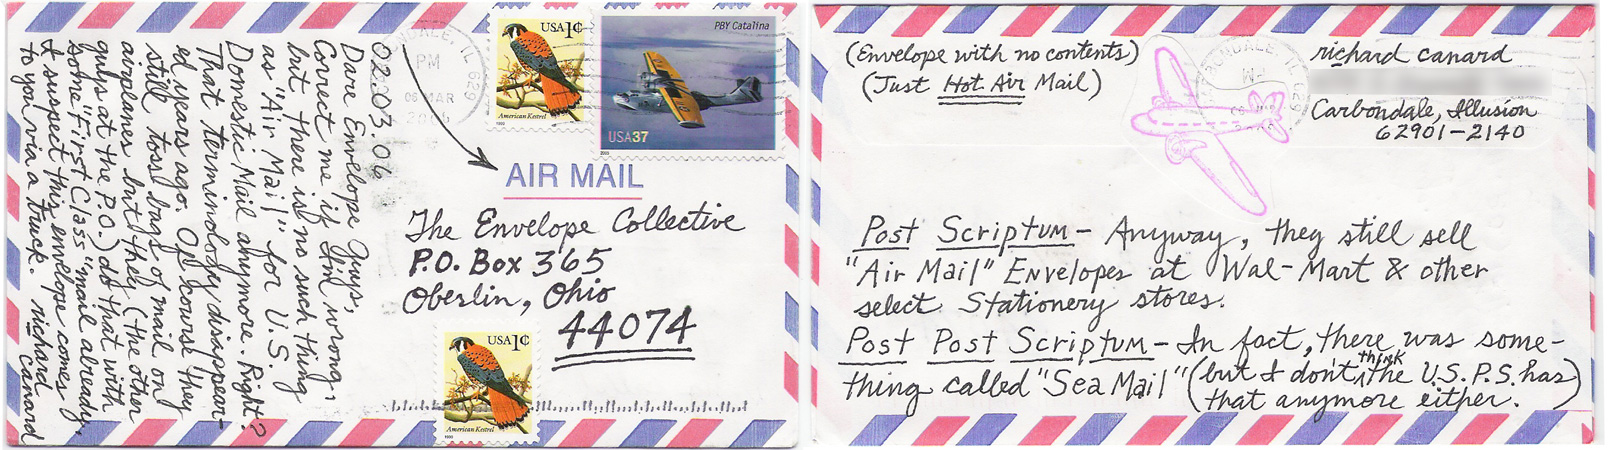 02.03.06
Dare Envelope Guys,
Correct me if I'm wrong,
but there is no such thing
as "Air Mail" for U.S.
Domestic Mail anymore. Right?
That terminology disappear-
ed years ago. Of course they
still toss bags of mail on
airplanes but they (the other
guys at the P.O.) do that with
some "First Class" mail already.
I suspect this envelope comes
to you via a truck. richard canard
NDALE, IL 629
PM
06 MAR
2006
USA1¢
American Kestrel
1999
PBY Catalina
USA37
2005
AIR MAIL
The Envelope Collective
P.O. Box 365
Oberlin, Ohio
44074
USA1¢
American Kestrel
1999
(Envelope with no contents)
(Just Hot Air Mail)
richard canard
Carbondale, Illusion
62901-2140
Post Scriptum - Anyway, they still sell
"Air Mail" Envelopes at Wal-Mart & other
select Stationery stores.
Post Post Scriptum - In fact, there was some-
thing called "Sea Mail" (but I don't think the U.S.P.S. has
that anymore either.)